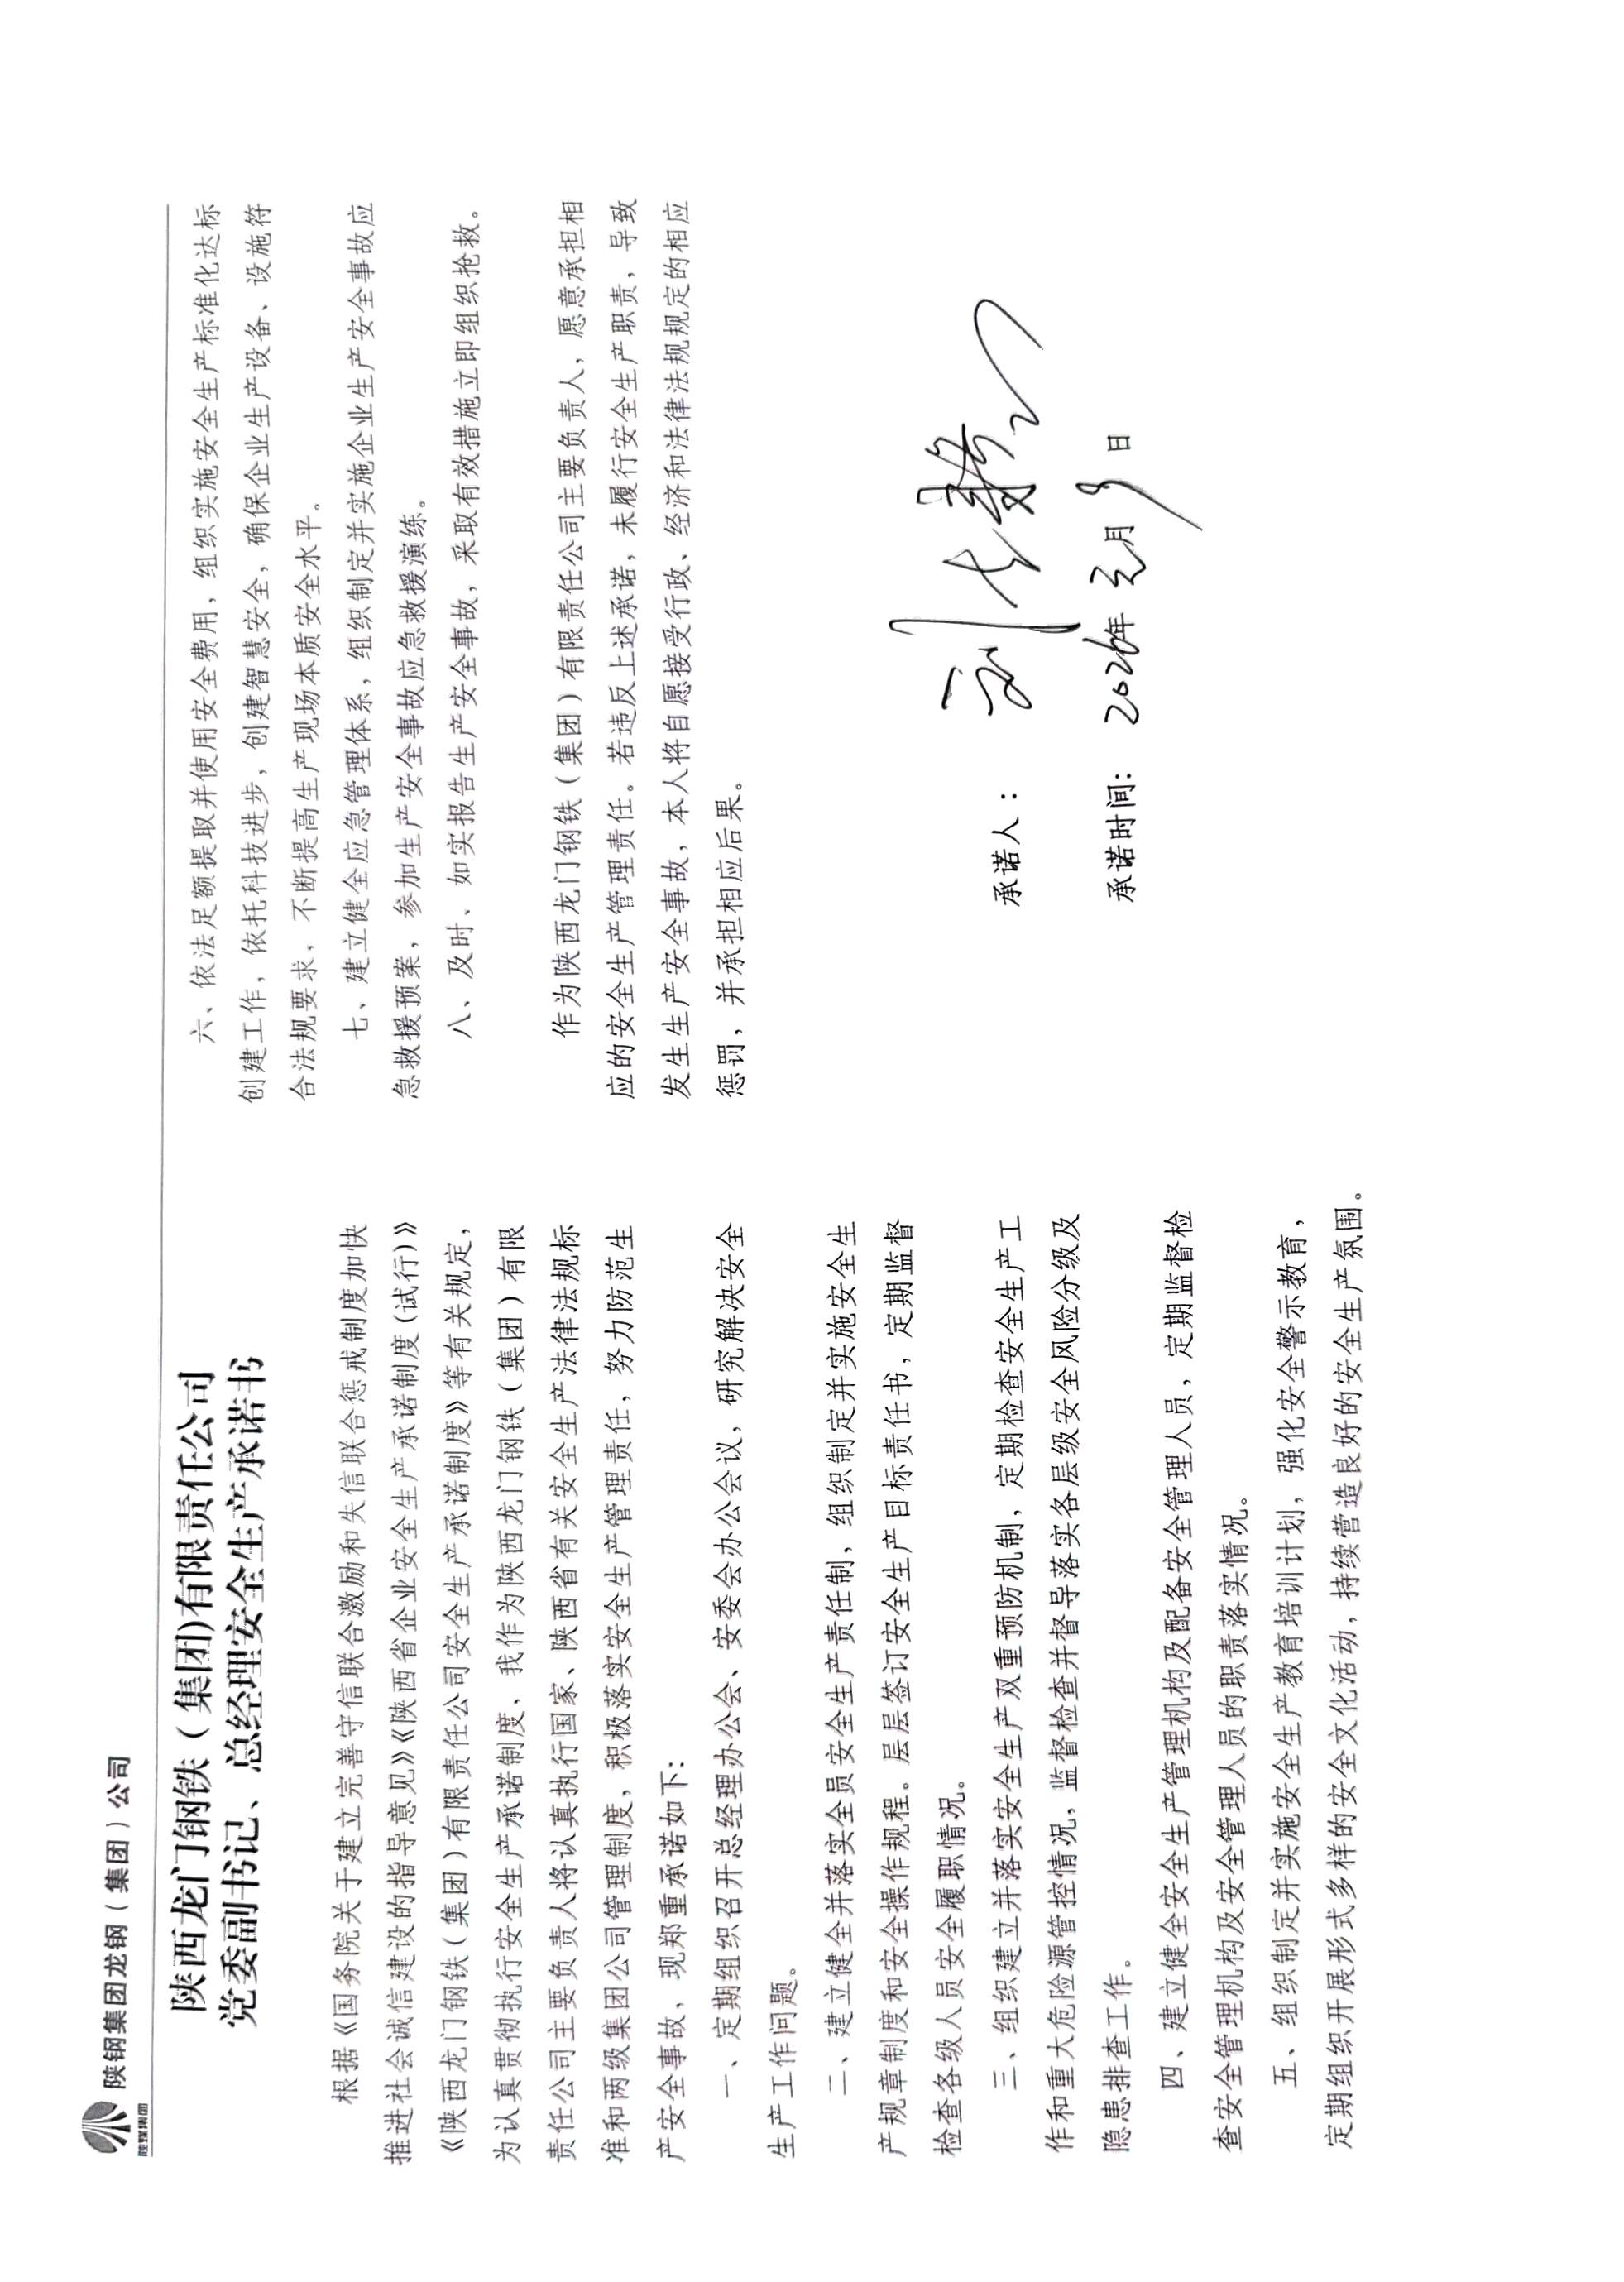 陕煤集团
陕钢集团龙钢（集团）公司
陕西龙门钢铁（集团)有限责任公司
党委副书记、总经理安全生产承诺书
根据《国务院关于建立完善守信联合激励和失信联合惩戒制度加快
推进社会诚信建设的指导意见》《陕西省企业安全生产承诺制度(试行)》
《陕西龙门钢铁（集团）有限责任公司安全生产承诺制度》等有关规定，
为认真贯彻执行安全生产承诺制度，我作为陕西龙门钢铁（集团）有限
责任公司主要负责人将认真执行国家、陕西省有关安全生产法律法规标
准和两级集团公司管理制度，积极落实安全生产管理责任，努力防范生
产安全事故，现郑重承诺如下：
一、定期组织召开总经理办公会、安委会办公会议，研究解决安全
生产工作问题。
二、建立健全并落实全员安全生产责任制，组织制定并实施安全生
产规章制度和安全操作规程。层层签订安全生产目标责任书，定期监督
检查各级人员安全履职情况。
三、组织建立并落实安全生产双重预防机制，定期检查安全生产工
作和重大危险源管控情况，监督检查并督导落实各层级安全风险分级及
隐患排查工作。
四、建立健全安全生产管理机构及配备安全管理人员，定期监督检
查安全管理机构及安全管理人员的职责落实情况。
五、组织制定并实施安全生产教育培训计划，强化安全警示教育，
定期组织开展形式多样的安全文化活动，持续营造良好的安全生产氛围。
六、依法足额提取并使用安全费用，组织实施安全生产标准化达标
创建工作，依托科技进步，创建智慧安全，确保企业生产设备、设施符
合法规要求，不断提高生产现场本质安全水平。
七、建立健全应急管理体系，组织制定并实施企业生产安全事故应
急救援预案，参加生产安全事故应急救援演练。
八、及时、如实报告生产安全事故，采取有效措施立即组织抢救。
作为陕西龙门钢铁（集团）有限责任公司主要负责人，愿意承担相
应的安全生产管理责任。若违反上述承诺，未履行安全生产职责，导致
发生生产安全事故，本人将自愿接受行政、经济和法律法规规定的相应
惩罚，并承担相应后果。
承诺人： 刘
承诺时间： 2026年 元月 9 日